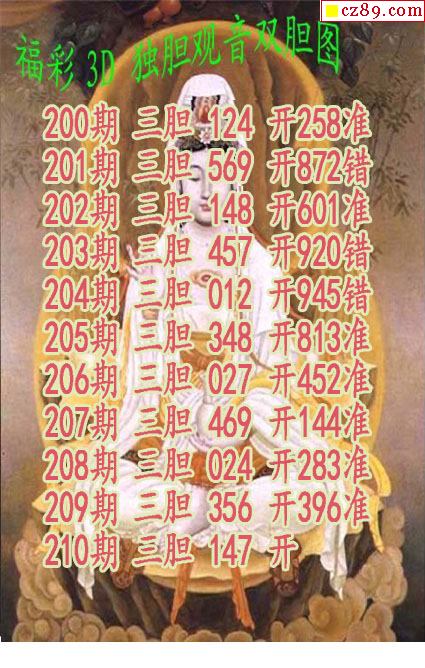 cz89.com
福彩 3D 独胆观音双胆图
200期 三胆 124 开258准
201期 三胆 569 开872错
202期 三胆 148 开601准
203期 三胆 457 开920错
204期 三胆 012 开945错
205期 三胆 348 开813准
206期 三胆 027 开452准
207期 三胆 469 开144准
208期 三胆 024 开283准
209期 三胆 356 开396准
210期 三胆 147 开